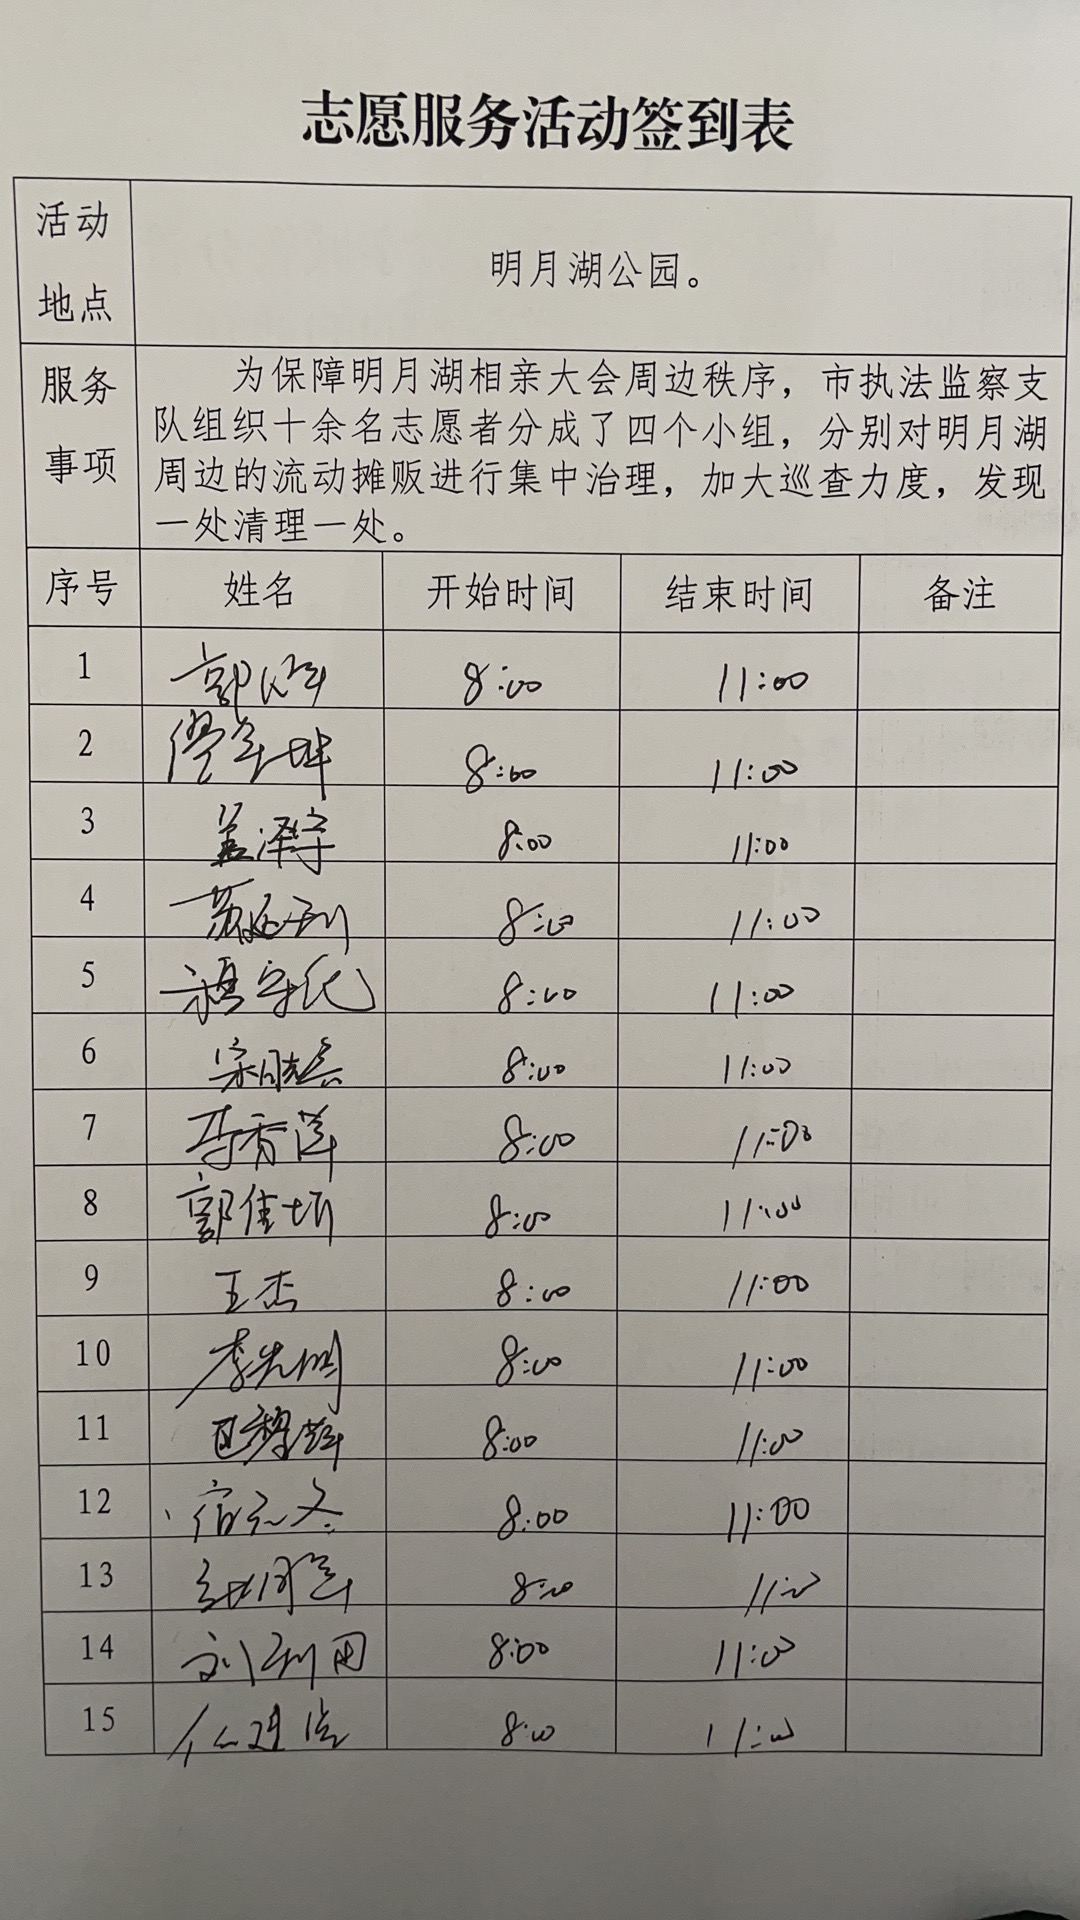 志愿服务活动签到表
活动地点
明月湖公园。
服务事项
为保障明月湖相亲大会周边秩序，市执法监察支
队组织十余名志愿者分成了四个小组，分别对明月湖
周边的流动摊贩进行集中治理，加大巡查力度，发现
一处清理一处。
序号 姓名 开始时间 结束时间 备注
1 8:00 11:00
2 8:00 11:00
3 孟泽宇 8:00 11:00
4 8:00 11:00
5 8:00 11:00
6 8:00 11:00
7 8:00 11:00
8 郭佳 8:00 11:00
9 王杰 8:00 11:00
10 李光明 8:00 11:00
11 8:00 11:00
12 8:00 11:00
13 8:00 11:00
14 8:00 11:00
15 8:00 11:00